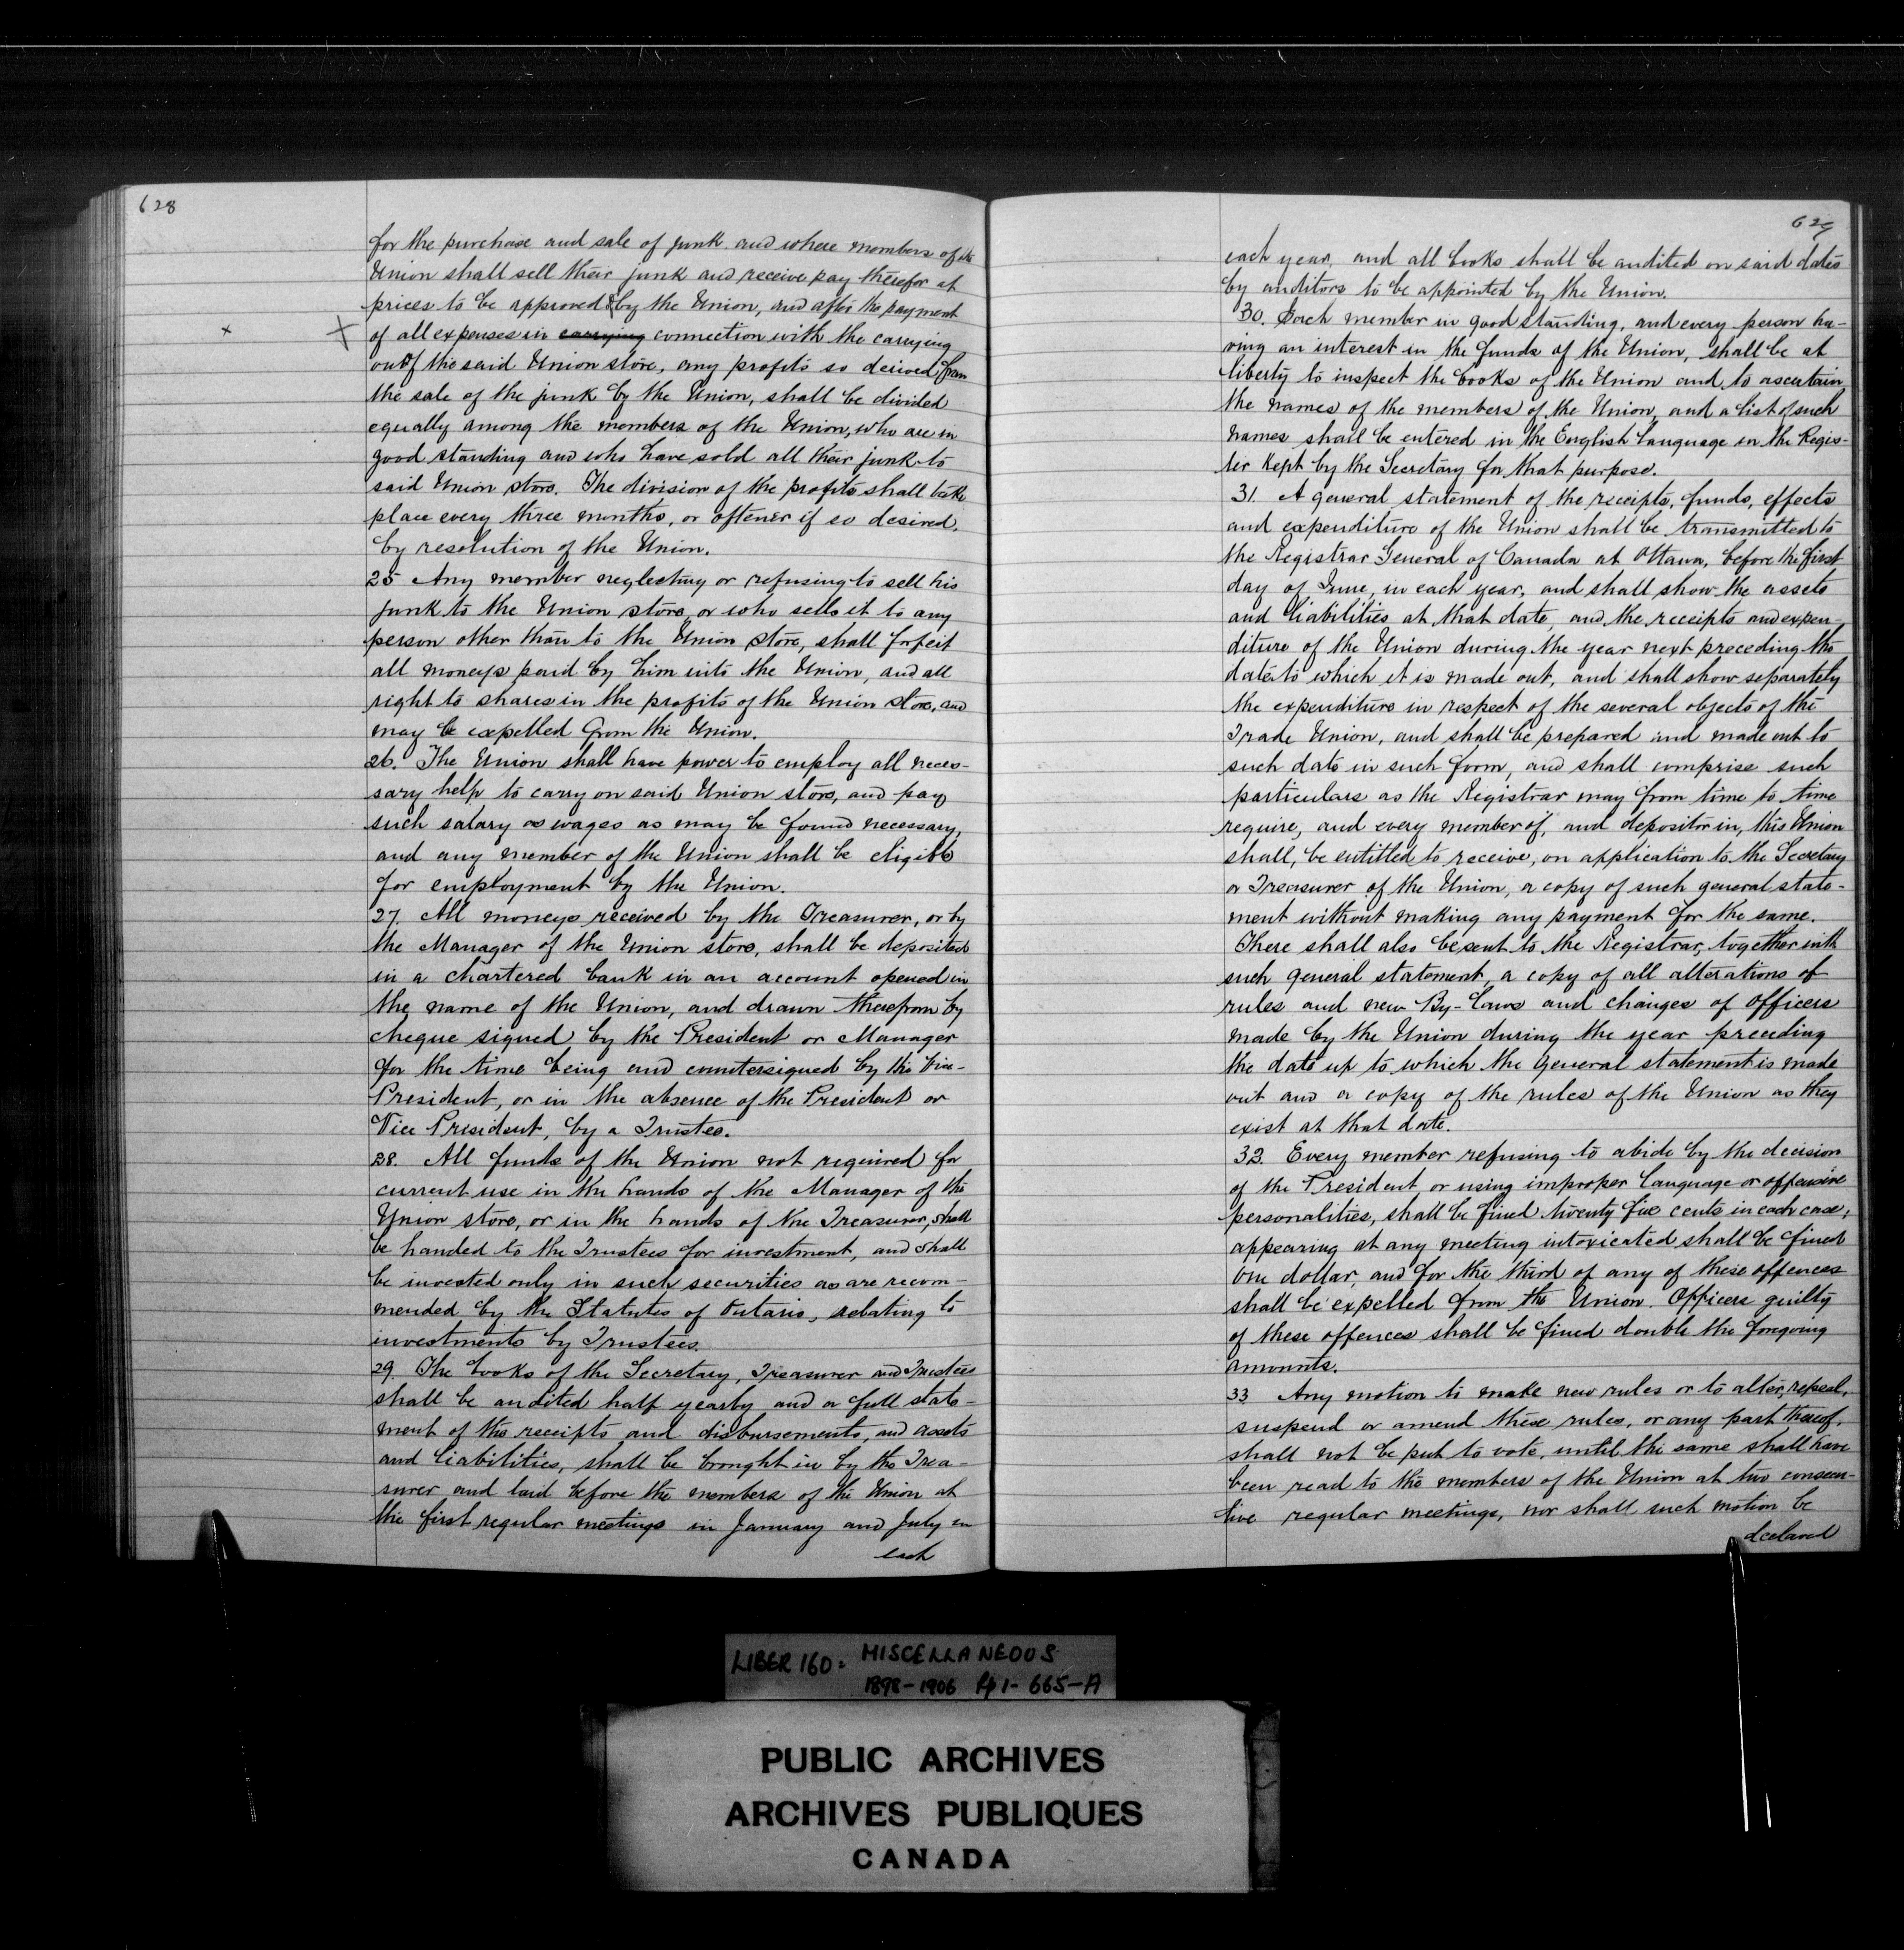 628
for the purchase and sale of junk and where members of the
Union shall sell their junk and receive pay therefor at
prices to be approved by the Union, and after the payment
of all expenses in carrying connection with the carrying
out of the said Union store, any profits so derived from
the sale of the junk by the Union, shall be divided
equally among the members of the Union, who are in
good standing and who have sold all their junk to
said Union store. The division of the profits shall take
place every three months, or oftener if so desired
by resolution of the Union.
25 Any member neglecting or refusing to sell his
junk to the Union store, or who sells it to any
person other than to the Union store, shall forfeit
all moneys paid by him into the Union, and all
right to shares in the profits of the Union store, and
may be expelled from the Union.
26. The Union shall have power to employ all neces-
sary help to carry on said Union store, and pay
such salary or wages as may be found necessary,
and any member of the Union shall be eligible
for employment by the Union.
27. All moneys received by the Treasurer, or by
the Manager of the Union store, shall be deposited
in a chartered bank in an account opened in
the name of the Union, and drawn therefrom by
cheque signed by the President or Manager
for the time being and countersigned by the Vice-
President, or in the absence of the President or
Vice President, by a Trustee.
28. All funds of the Union not required for
current use in the hands of the Manager of the
Union store, or in the hands of the Treasurer, shall
be handed to the Trustees for investment, and shall
be invested only in such securities as are recom-
mended by the Statutes of Ontario, relating to
investments by Trustees.
29. The books of the Secretary, Treasurer and Trustees
shall be audited half yearly and a full state-
ment of the receipts and disbursements, and assets
and liabilities, shall be brought in by the Trea-
surer and laid before the members of the Union at
the first regular meetings in January and July in
each
629
each year, and all books shall be audited on said dates
by auditors to be appointed by the Union.
30. Each member in good standing, and every person ha-
ving an interest in the funds of the Union, shall be at
liberty to inspect the books of the Union and to ascertain
the names of the members of the Union, and a list of such
names shall be entered in the English language in the Regis-
ter kept by the Secretary for that purpose.
31. A general statement of the receipts, funds, effects
and expenditure of the Union shall be transmitted to
the Registrar General of Canada at Ottawa, before the first
day of June, in each year, and shall show the assets
and liabilities at that date, and the receipts and expen-
diture of the Union during the year next preceding the
date to which it is made out, and shall show separately
the expenditure in respect of the several objects of the
Trade Union, and shall be prepared and made out to
such date in such form, and shall comprise such
particulars as the Registrar may from time to time
require, and every member of, and depositor in, this Union
shall, be entitled to receive, on application to the Secretary
or Treasurer of the Union, a copy of such general state-
ment without making any payment for the same.
There shall also be sent to the Registrar, together with
such general statement, a copy of all alterations of
rules and new By-laws and changes of officers
made by the Union during the year preceding
the date up to which the general statement is made
out and a copy of the rules of the Union as they
exist at that date.
32. Every member refusing to abide by the decision
of the President or using improper language or offensive
personalities, shall be fined twenty five cents in each case,
appearing at any meeting intoxicated shall be fined
One dollar, and for the third of any of these offences
shall be expelled from the Union. Officers guilty
of these offences shall be fined double the foregoing
amounts.
33 Any motion to make new rules or to alter, repeal,
suspend or amend these rules, or any part thereof,
shall not be put to vote, until the same shall have
been read to the members of the Union at two consecu-
tive regular meetings, nor shall such motion be
declared
LIBER 160: MISCELLANEOUS
1898-1906 Pp 1-665-A
PUBLIC ARCHIVES
ARCHIVES PUBLIQUES
CANADA